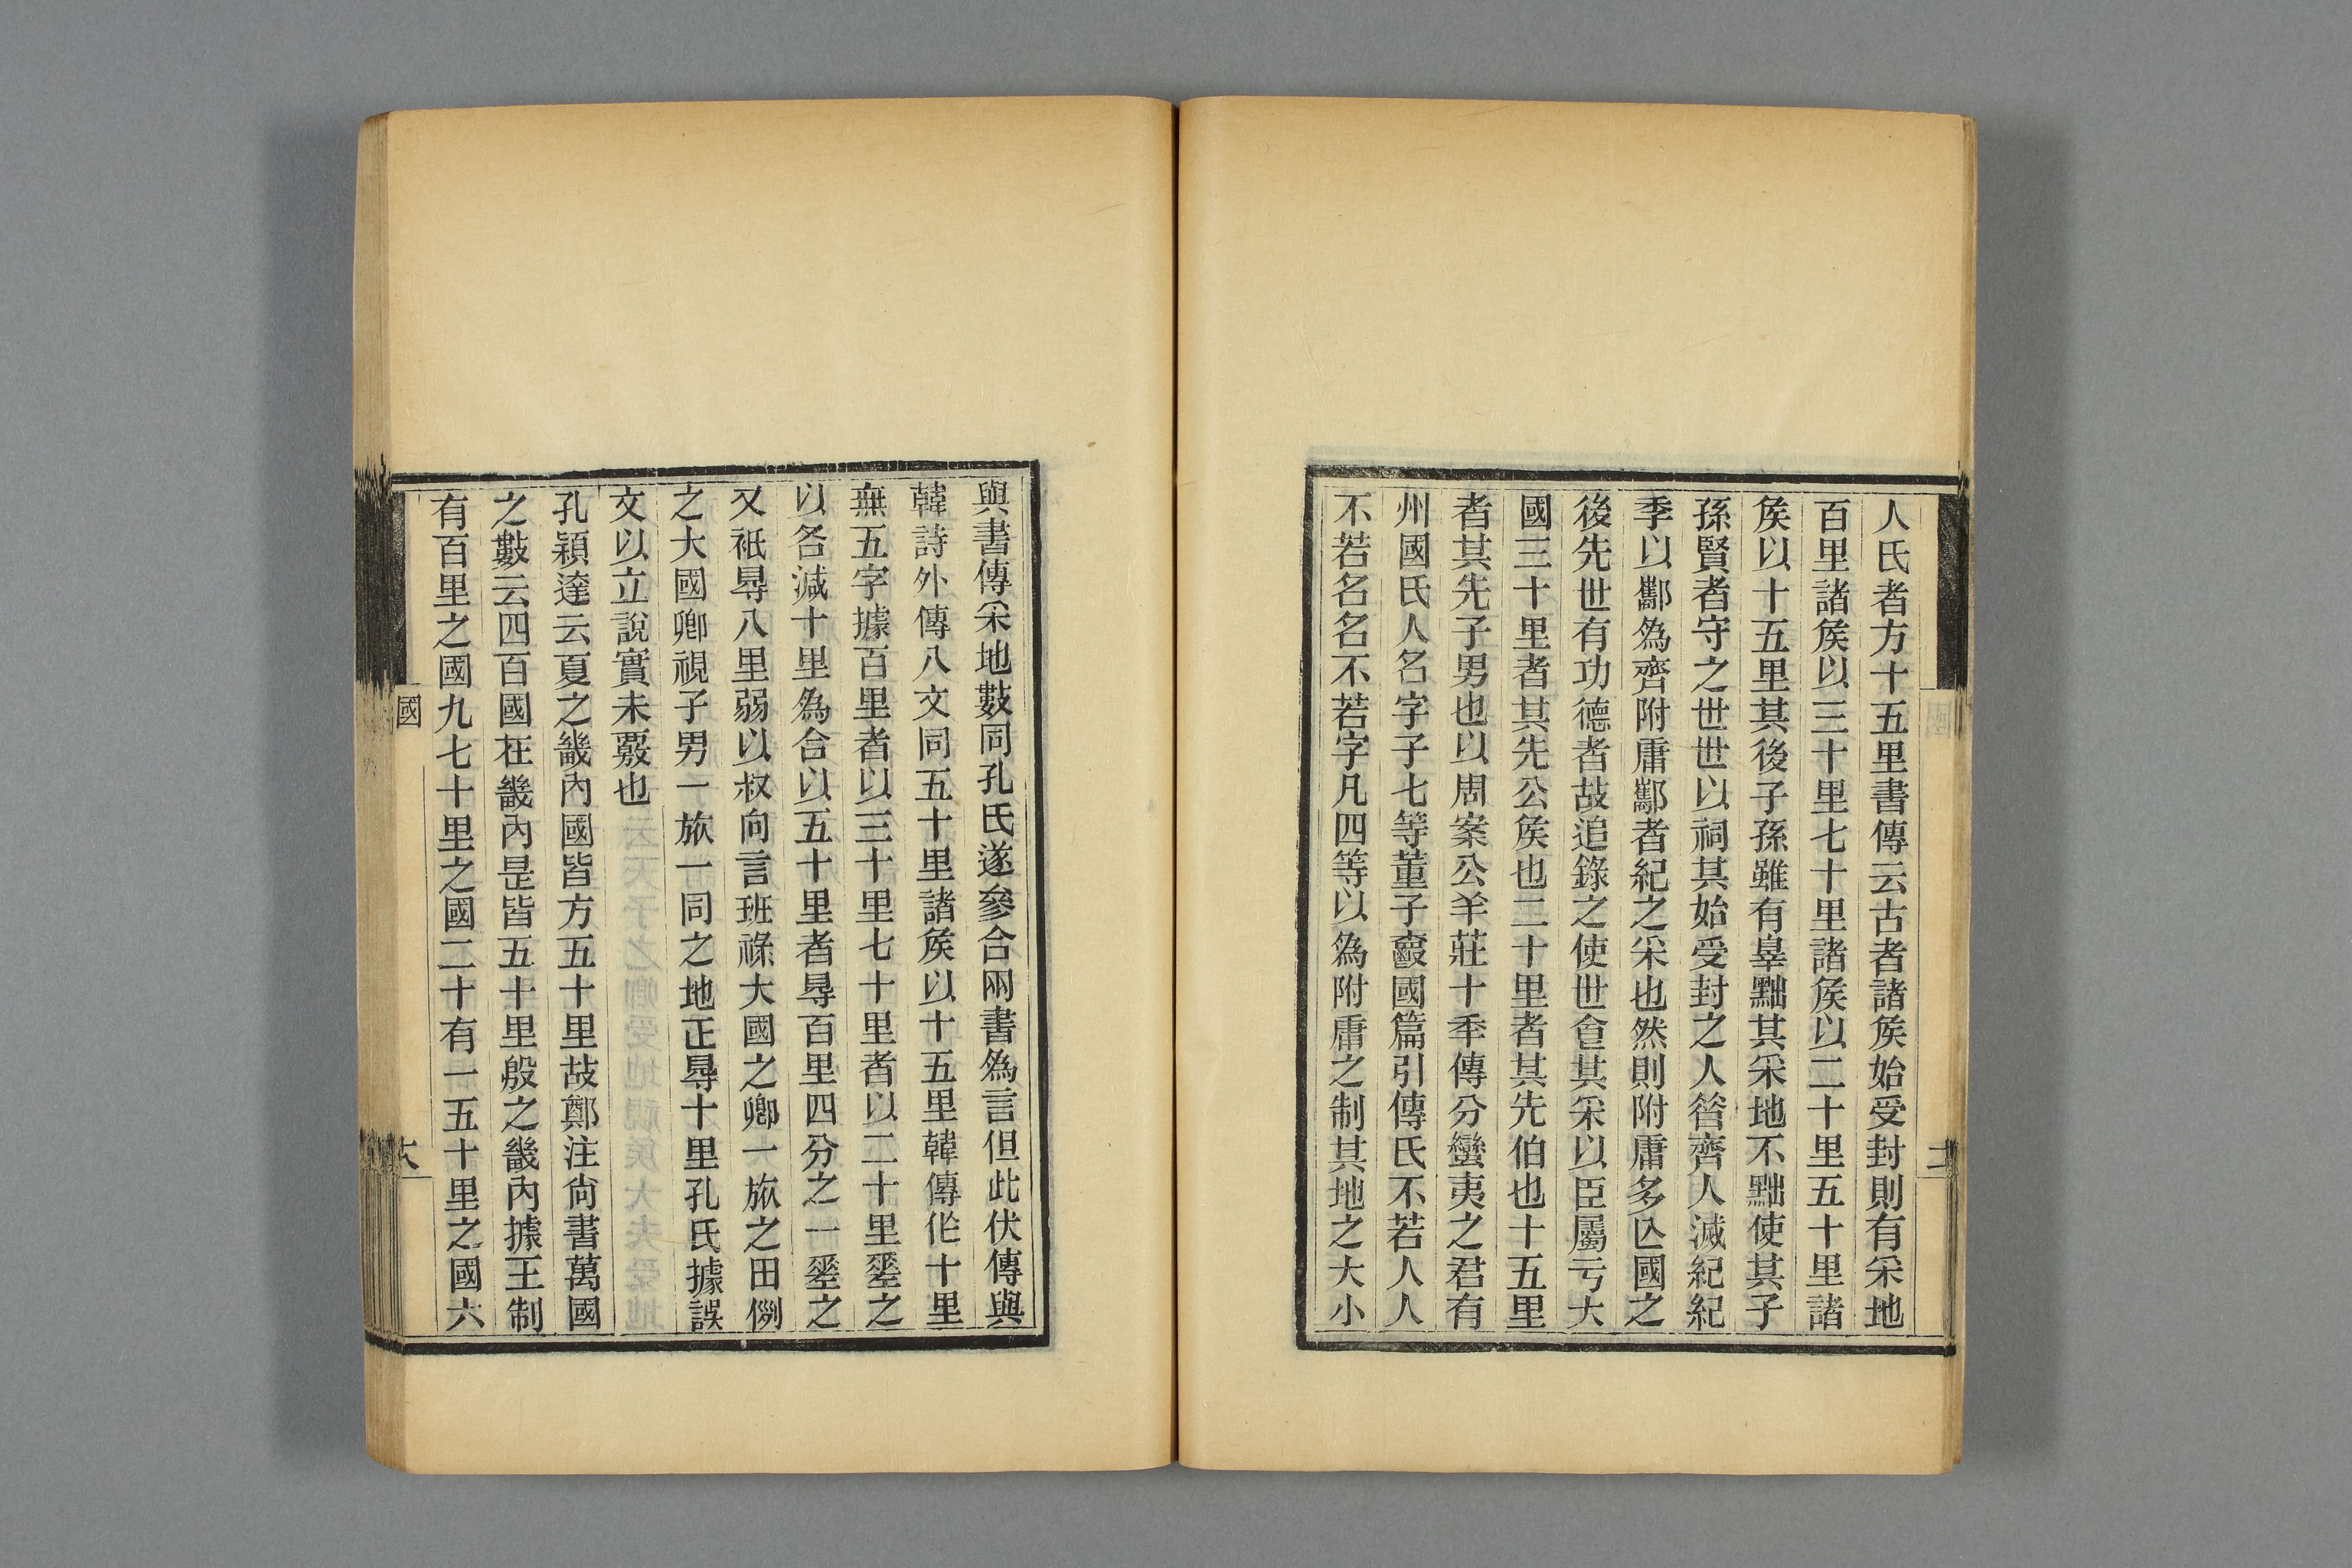 人氏者方十五里書傳云古者諸矦始受封則有采地
百里諸矦以三十里七十里諸矦以二十里五十里諸
矦以十五里其後子孫雖有辠黜其采地不黜使其子
孫賢者守之世世以祠其始受封之人昝齊人滅紀紀
季以酅爲齊附庸酅者紀之采也然則附庸多亾國之
後先世有功德者故追錄之使世食其采以臣屬亏大
國三十里者其先公矦也二十里者其先伯也十五里
者其先子男也以周案公羊莊十秊傳分蠻夷之君有
州國氏人名字子七等董子爵國篇引傳氏不若人人
不若名名不若字凡四等以爲附庸之制其地之大小
與書傳采地數同孔氏遂參合兩書爲言但此伏傳與
韓詩外傳八文同五十里諸矦以十五里韓傳作十里
無五字據百里者以三十里七十里者以二十里差之
以各減十里爲合以五十里者㝵百里四分之一差之
又祇㝵八里弱以叔向言班祿大國之卿一旅之田例
之大國卿視子男一旅一同之地正㝵十里孔氏據誤
文以立說實未覈也
孔穎達云夏之畿內國皆方五十里故鄭注尙書萬國
之數云四百國在畿內是皆五十里殷之畿內據王制
有百里之國九七十里之國二十有一五十里之國六
國